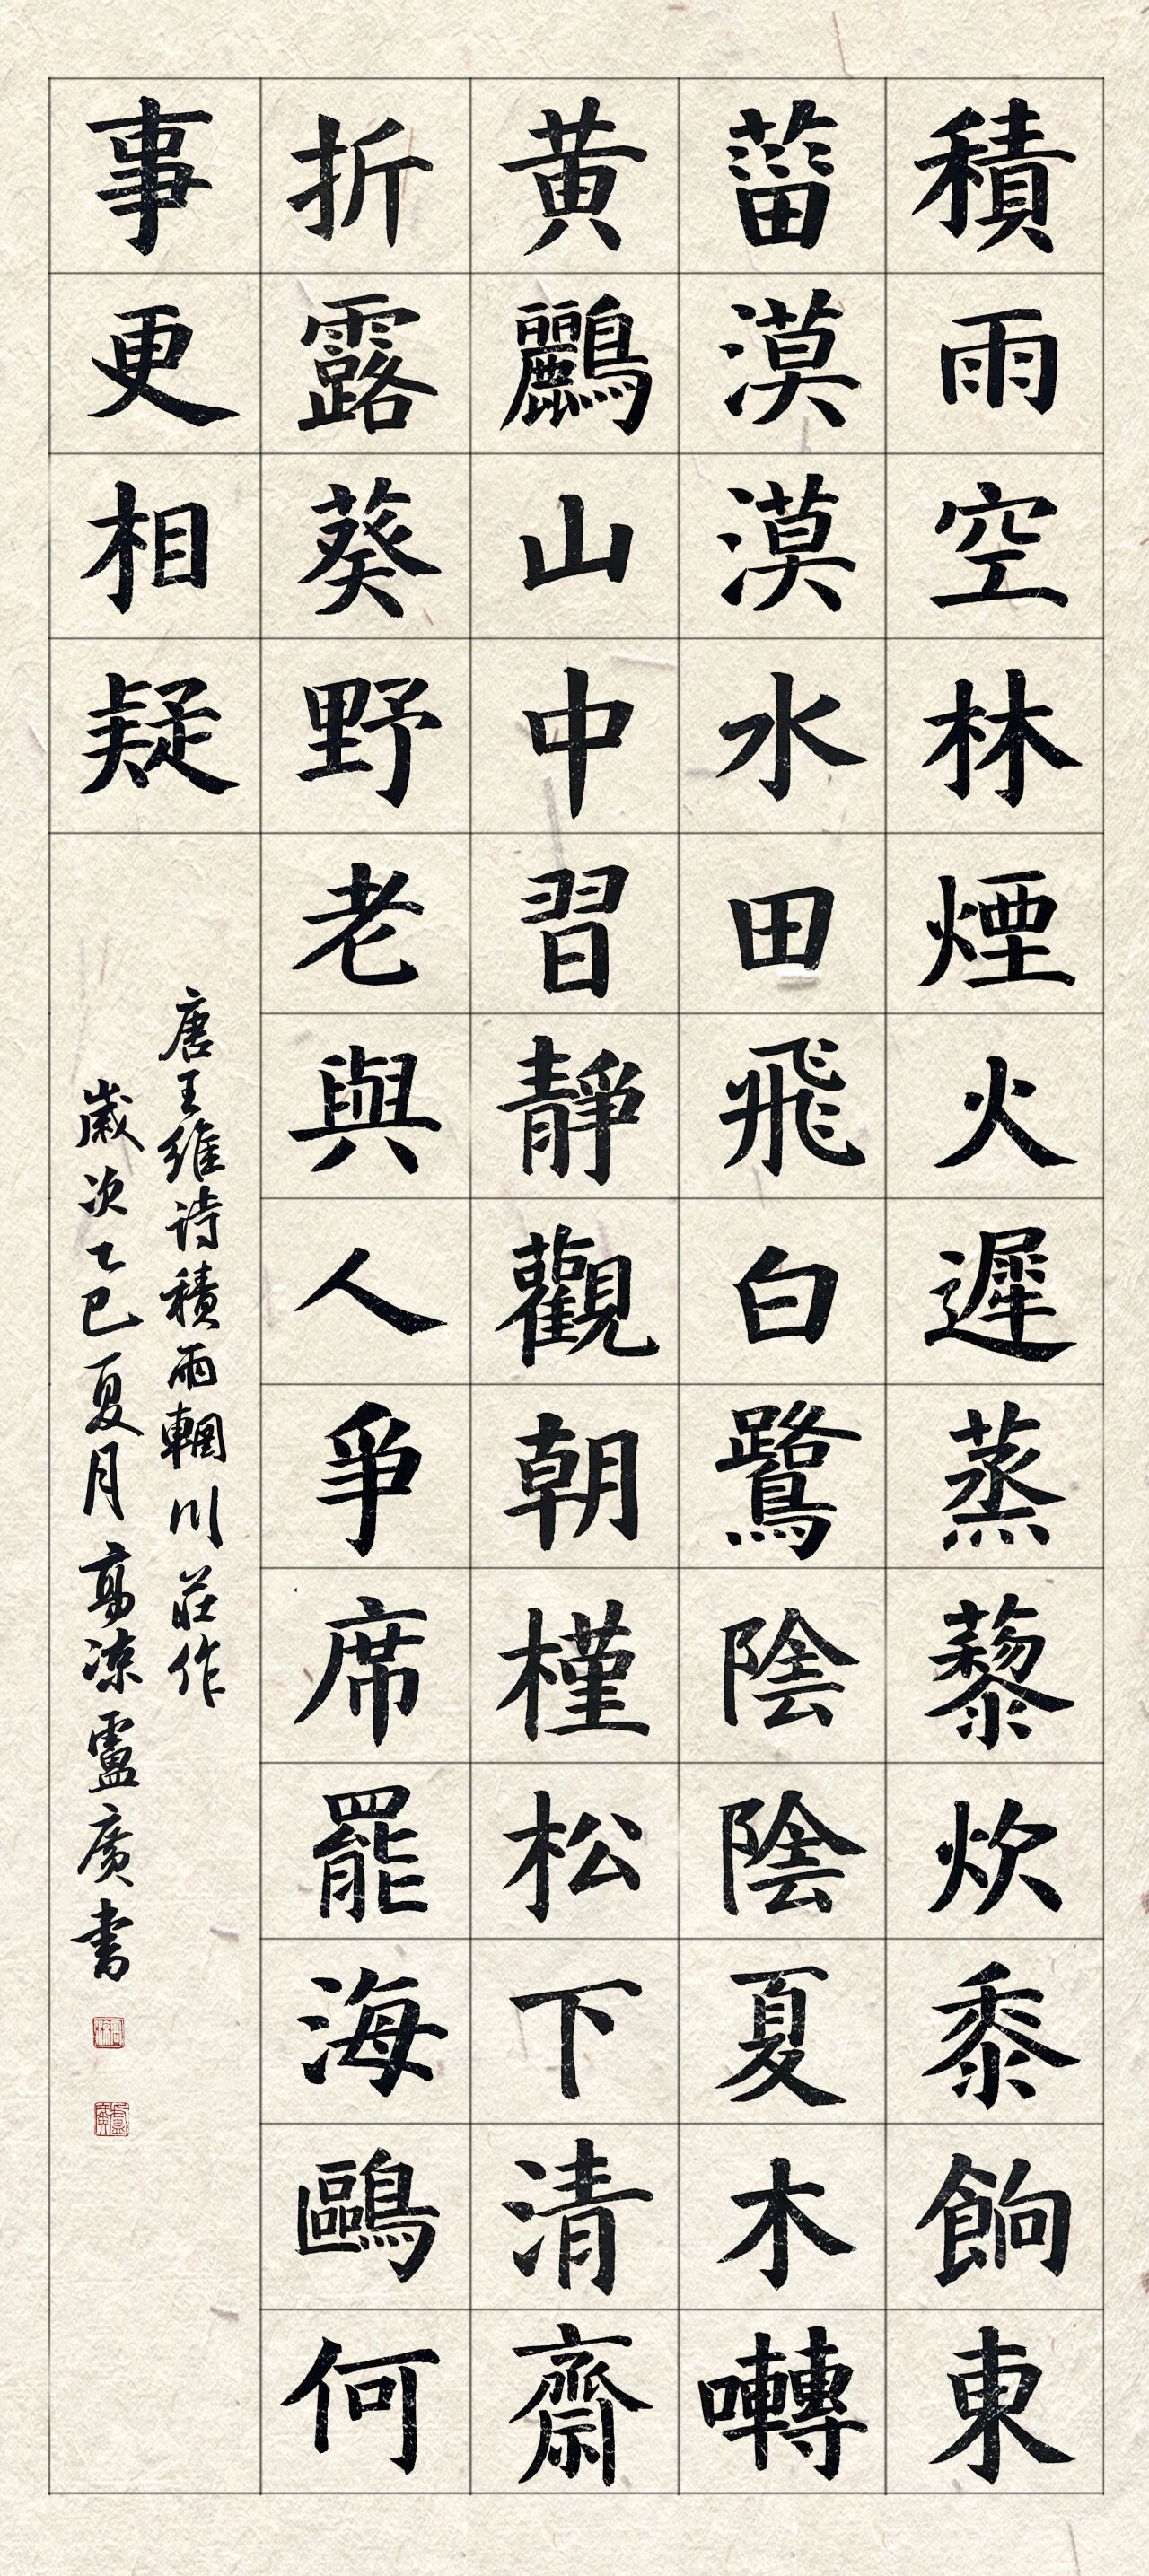 積雨空林煙火遲蒸藜炊黍餉東
菑漠漠水田飛白鷺陰陰夏木囀
黃鸝山中習靜觀朝槿松下清齋
折露葵野老與人爭席罷海鷗何
事更相疑
唐王維诗積雨輞川莊作
歲次乙巳夏月高凉盧廣書